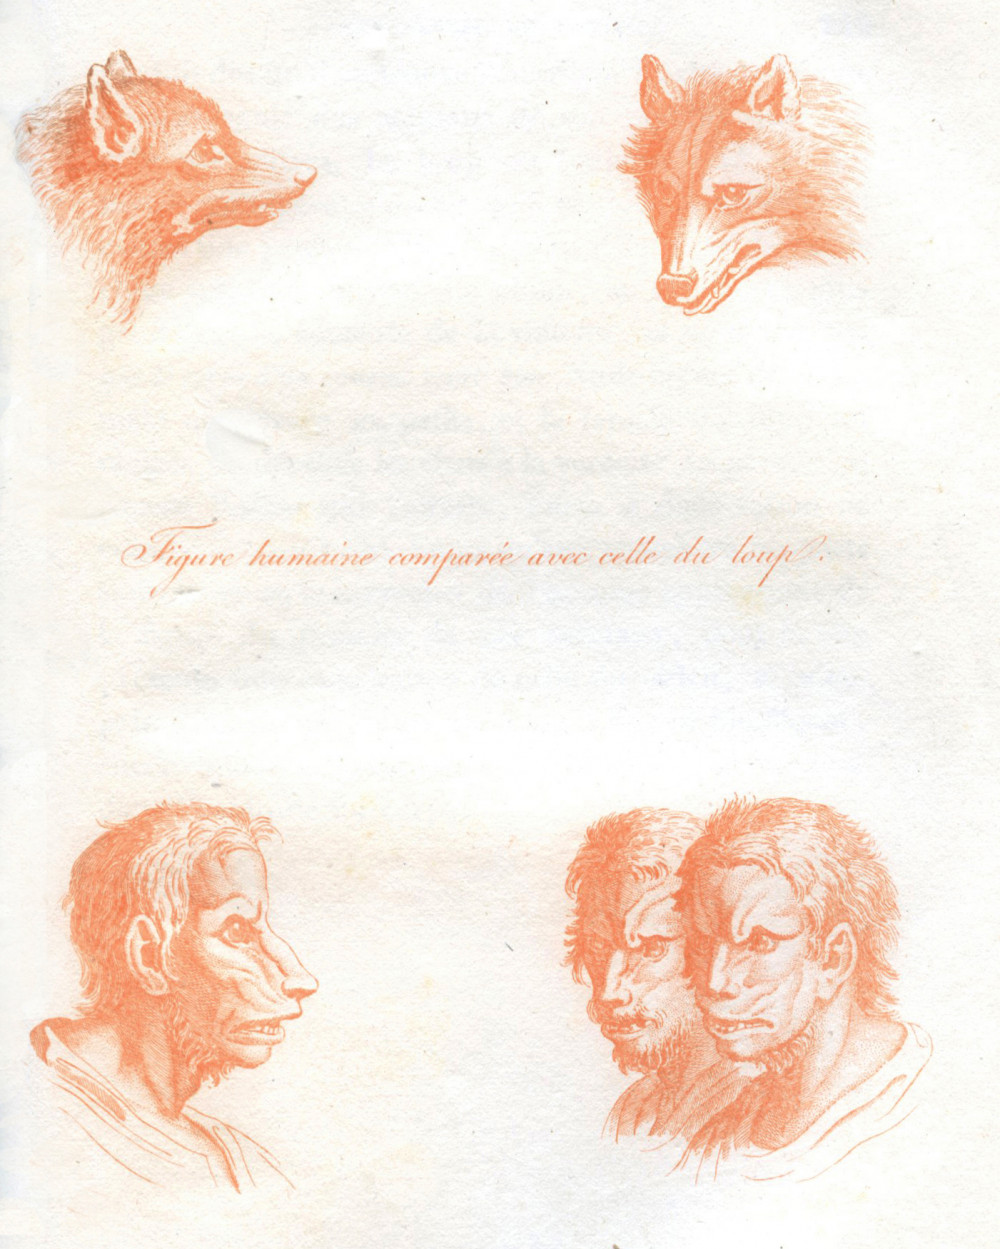 Figure humaine comparée avec celle du loup.